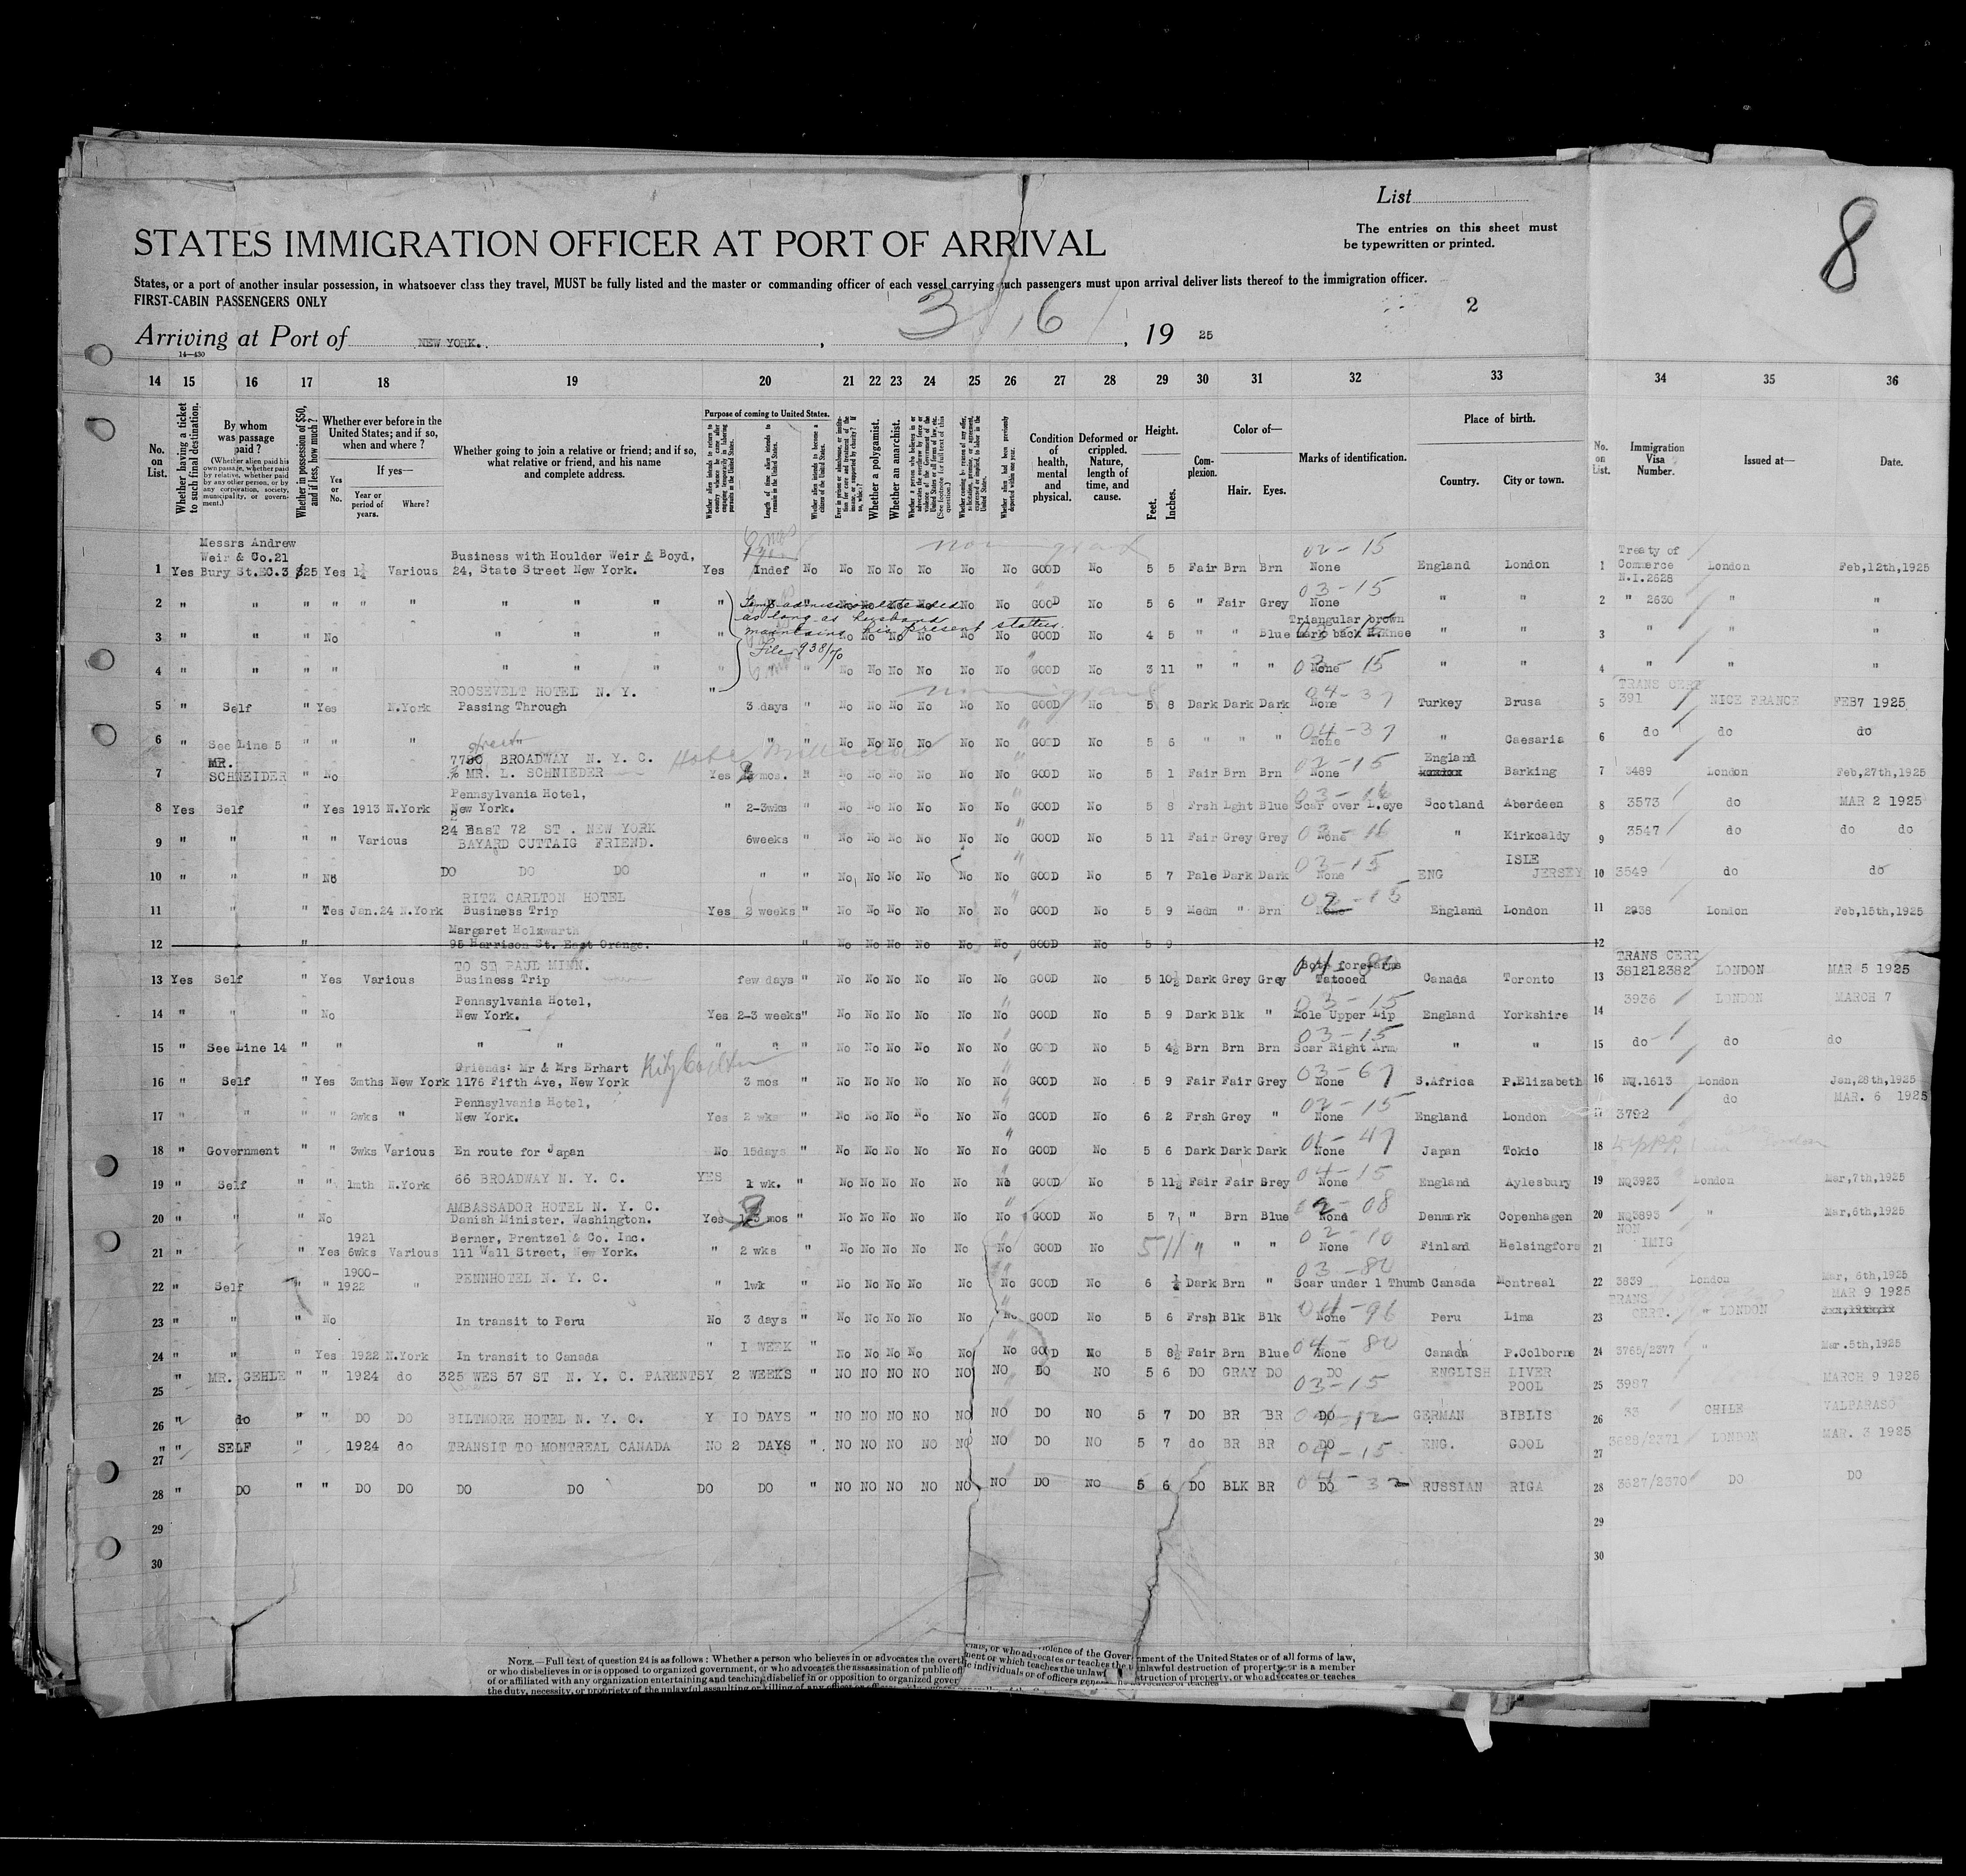 List
8
The entries on this sheet must
be typewritten or printed.
STATES IMMIGRATION OFFICER AT PORT OF ARRIVAL
States, or a port of another insular possession, in whatsoever class they travel, MUST be fully listed and the master or commanding officer of each vessel carrying such passengers must upon arrival deliver lists thereof to the immigration officer.
FIRST-CABIN PASSENGERS ONLY
2
Arriving at Port of NEW YORK. , 3 / 16 / , 19 25
14—430
14 15 16 17 18 19 20 21 22 23 24 25 26 27 28 29 30 31 32 33 34 35 36
No. on List.
Whether having a ticket to such final destination.
By whom was passage paid?
(Whether alien paid his own passage, whether paid by relative, whether paid by any other person, or by any corporation, society, municipality, or government.)
Whether in possession of $50, and if less, how much?
Whether ever before in the United States; and if so, when and where?
Yes or No.
If yes—
Year or period of years.
Where?
Whether going to join a relative or friend; and if so, what relative or friend, and his name and complete address.
Purpose of coming to United States.
Length of time alien intends to remain in the United States.
Whether alien intends to become a citizen of the United States.
Whether a polygamist.
Whether an anarchist.
Condition of health, mental and physical.
Deformed or crippled. Nature, length of time, and cause.
Height.
Feet. Inches.
Complexion.
Color of—
Hair. Eyes.
Marks of identification.
Place of birth.
Country. City or town.
No. on List.
Immigration Visa Number.
Issued at—
Date.
Messrs Andrew
Weir & Co.21 Business with Houlder Weir & Boyd, 02-15 Treaty of
1 Yes Bury St.EC.3 $25 Yes 1½ Various 24, State Street New York. Yes Indef No No No No No No No GOOD No 5 5 Fair Brn Brn None England London 1 Commerce London Feb,12th,1925
N.I.2628
03-15
2 " " " " " " " " " " No No No No No No GOOD No 5 6 " Fair Grey None " " 2 " 2630 " "
Temp admission extended
as long as husband
maintains his present status.
File 938/70
Triangular brown
3 " " " No " " " " No No No No No No GOOD No 4 5 " " Blue Mark back R.Knee " " 3 " " "
4 " " " " " " " " No No No No No No GOOD No 3 11 " " " None 03-15 " " 4 " " "
ROOSEVELT HOTEL N. Y. " 04-37 TRANS CERT
5 " Self " Yes N.York Passing Through 3 days " No No No No No No GOOD No 5 8 Dark Dark Dark None Turkey Brusa 5 391 NICE FRANCE FEB7 1925
6 " See Line 5 " " " " " " No No No No No No GOOD No 5 6 " " " None 04-37 " Caesaria 6 do do do
MR. street 7750 BROADWAY N. Y. C. 02-15 England
7 SCHNEIDER " No % MR. L. SCHNIEDER Yes mos. " No No No No No No GOOD No 5 1 Fair Brn Brn None Barking 7 3489 London Feb,27th,1925
Pennsylvania Hotel, 03-16
8 Yes Self " Yes 1913 N.York New York. " 2-3wks " No No No No No No GOOD No 5 8 Frsh Lght Blue Scar over L.eye Scotland Aberdeen 8 3573 do MAR 2 1925
24 EasT 72 ST . NEW YORK
9 " " " " Various BAYARD CUTTAIG FRIEND. 6weeks " No No No No No No GOOD No 5 11 Fair Grey Grey None 03-16 " Kirkcaldy 9 3547 do do do
DO DO DO 03-15 ISLE
10 " " " No " " No No No No No No GOOD No 5 7 Pale Dark Dark None ENG JERSEY 10 3549 do do
RITZ CARLTON HOTEL 02-15
11 " " Yes Jan.24 N.York Business Trip Yes 2 weeks " No No No No No No GOOD No 5 9 Medm " Brn None England London 11 2938 London Feb,15th,1925
Margaret Holzwarth
12 " " 95 Harrison St. East Orange. " No No No No No No GOOD No 5 9 12
TO ST PAUL MINN. Both forearms TRANS CERT
13 Yes Self " Yes Various Business Trip few days " No No No No No No GOOD No 5 10½ Dark Grey Grey Tatooed Canada Toronto 13 381212382 LONDON MAR 5 1925
Pennsylvania Hotel, 03-15
14 " " " No New York. Yes 2-3 weeks " No No No No No No GOOD No 5 9 Dark Blk " Mole Upper Lip England Yorkshire 14 3936 LONDON MARCH 7
03-15
15 " See Line 14 " " " " " " " No No No No No No GOOD No 5 4½ Brn Brn Brn Scar Right Arm " " 15 do do do
Friends: Mr & Mrs Erhart Ritz Carlton 03-67
16 " Self " Yes 3mths New York 1176 Fifth Ave, New York 3 mos " No No No No No No GOOD No 5 9 Fair Fair Grey None S.Africa P.Elizabeth 16 NQ.1613 London Jan,28th,1925
Pennsylvania Hotel, 02-15 do MAR. 6 1925
17 " " " " 2wks " New York. Yes 2 wks " No No No No No No GOOD No 6 2 Frsh Grey " None England London 17 3792
18 " Government " " 3wks Various En route for Japan No 15days " No No No No No No GOOD No 5 6 Dark Dark Dark None 01-47 Japan Tokio 18
19 " Self " " 1mth N.York 66 BROADWAY N. Y. C. YES 1 wk. " No No No No No No GOOD No 5 11½ Fair Fair Grey None 04-15 England Aylesbury 19 NQ3923 London Mar,7th,1925
AMBASSADOR HOTEL N. Y. C. 02-08
20 " " " No Danish Minister. Washington. Yes 1-3 mos " No No No No No No GOOD No 5 7 " Brn Blue None Denmark Copenhagen 20 NQ3893 " Mar,6th,1925
1921 Berner, Prentzel & Co. Inc. 02-10 NON
21 " " " Yes 6wks Various 111 Wall Street, New York. " 2 wks " No No No No No No GOOD No 5 11 " " " None Finland Helsingfors 21 IMIG
1900- 03-80
22 " Self " " 1922 " PENNHOTEL N. Y. C. " 1wk " No No No No No No GOOD No 6 ½ Dark Brn " Scar under l Thumb Canada Montreal 22 3839 London Mar, 6th,1925
04-96 TRANS MAR 9 1925
23 " " " No In transit to Peru No 3 days " No No No No No No GOOD No 5 6 Frsh Blk Blk None Peru Lima 23 CERT. " LONDON
24 " " " Yes 1922 N.York In transit to Canada " 1 WEEK " No No No No No No GOOD No 5 8½ Fair Brn Blue None 04-80 Canada P.Colborne 24 3765/2377 " Mar.5th,1925
25 " MR. GEHLE " " 1924 do 325 WES 57 ST N. Y. C. PARENTS Y 2 WEEKS " NO NO NO NO NO NO DO NO 5 6 DO GRAY DO DO 03-15 ENGLISH LIVER POOL 25 3987 MARCH 9 1925
26 " do " " DO DO BILTMORE HOTEL N. Y. C. Y 10 DAYS " NO NO NO NO NO NO DO NO 5 7 DO BR BR DO 04-12 GERMAN BIBLIS 26 33 CHILE VALPARASO
27 " " SELF " 1924 do TRANSIT TO MONTREAL CANADA NO 2 DAYS " NO NO NO NO NO NO DO NO 5 7 do BR BR DO 04-15 ENG. GOOL 27 3628/2371 LONDON MAR. 3 1925
28 " DO " " DO DO DO DO DO DO " NO NO NO NO NO NO DO NO 5 6 DO BLK BR DO RUSSIAN RIGA 28 3627/2370 DO DO
29 29
30 30
NOTE.—Full text of question 24 is as follows: Whether a person who believes in or advocates the overth
or who disbelieves in or is opposed to organized government, or who advocates the assassination of public of
of or affiliated with any organization entertaining and teaching disbelief in or opposition to organized gover
the duty, necessity, or propriety of the unlawful assaulting or killing of any
nment of the United States or of all forms of law,
unlawful destruction of property, or is a member
struction of property, or who advocates or teaches